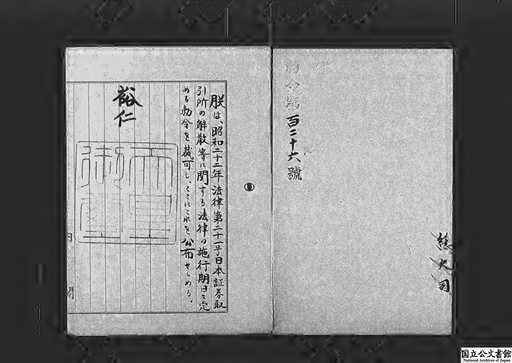 勅令第百二十六號
朕は、昭和二十二年法律第二十一号日本証券取
引所の解散等に関する法律の施行期日を定
める勅令を裁可し、ここにこれを公布せしめる。
裕仁
天皇
御璽
月
日
国立公文書館
National Archives of Japan